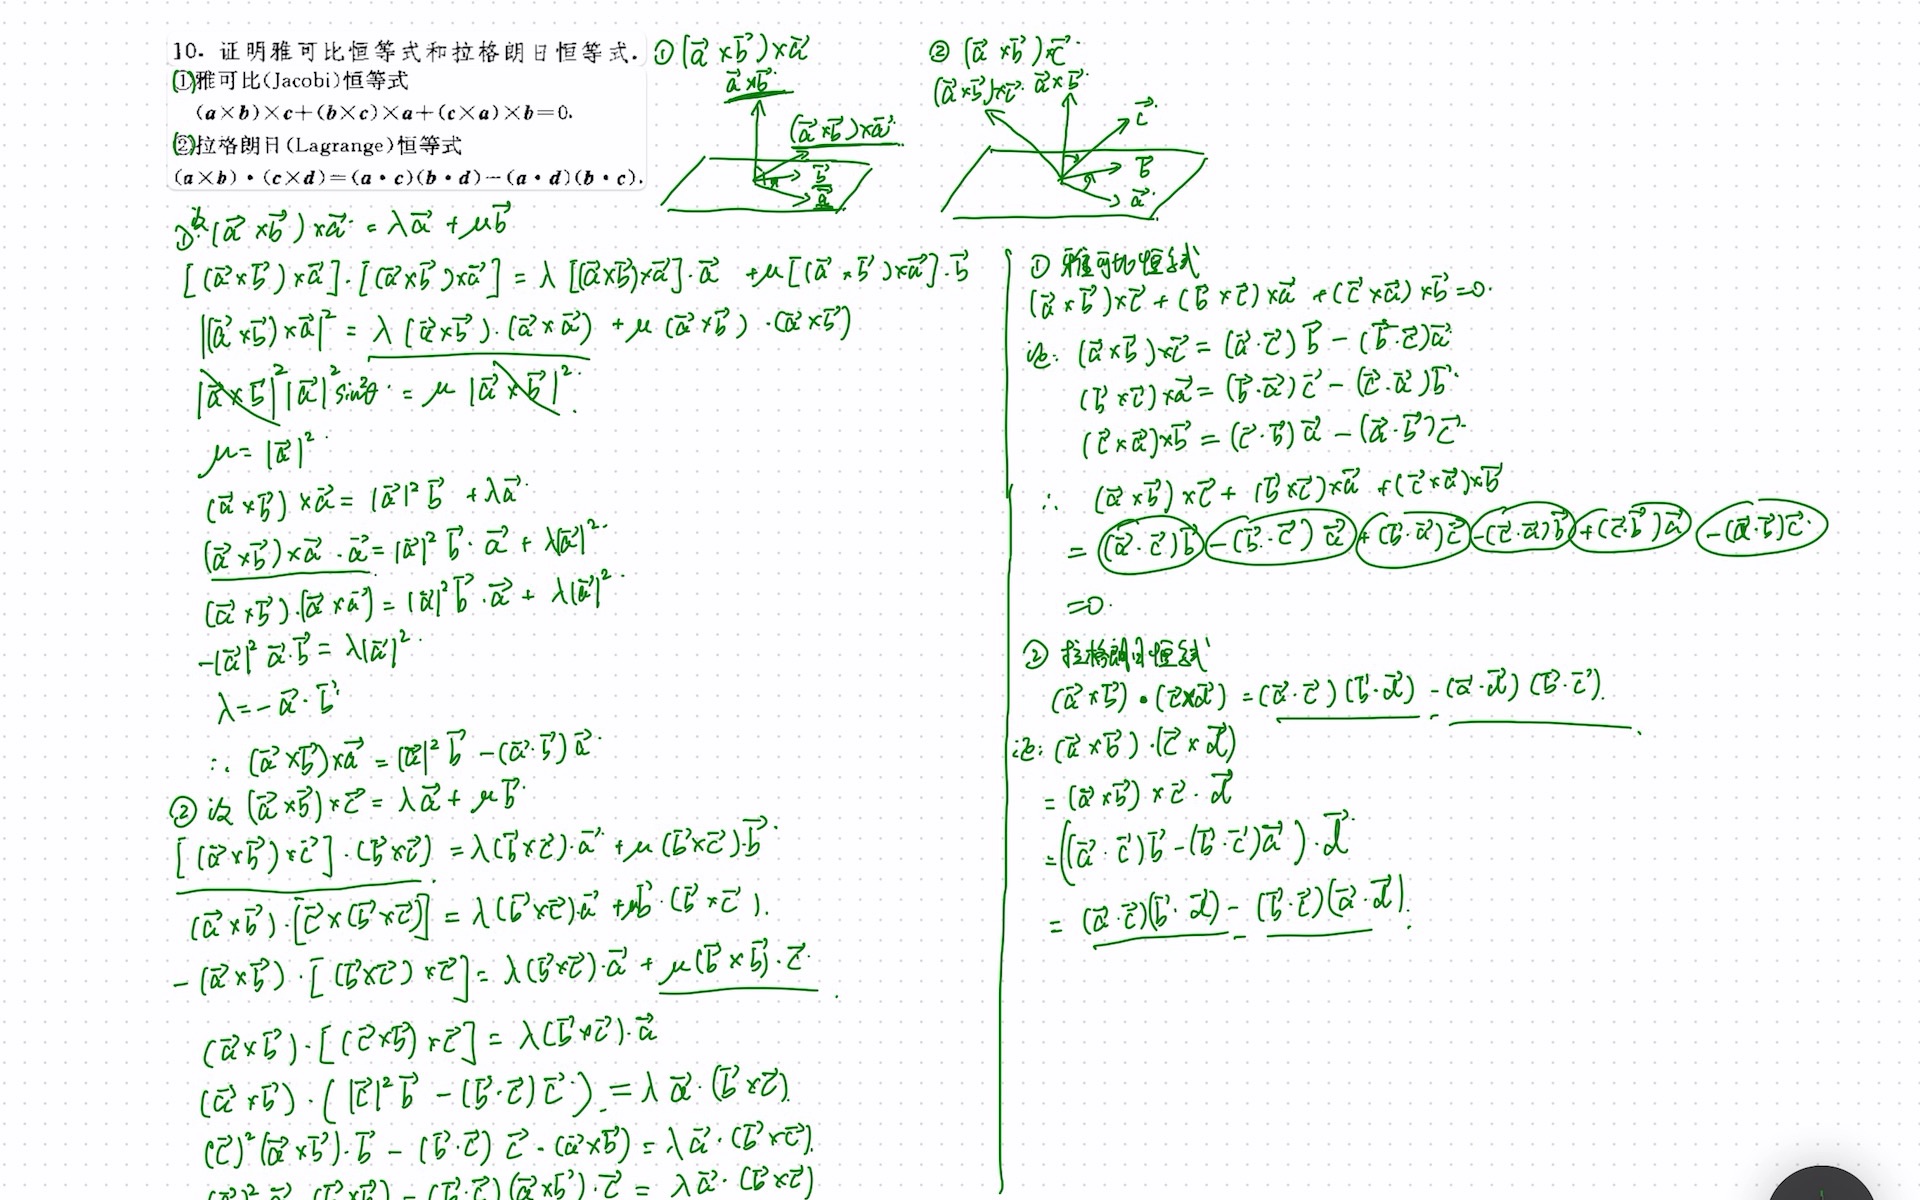 10. 证明雅可比恒等式和拉格朗日恒等式.
①雅可比(Jacobi)恒等式
(a×b)×c+(b×c)×a+(c×a)×b=0.
②拉格朗日(Lagrange)恒等式
(a×b)·(c×d)=(a·c)(b·d)-(a·d)(b·c).
① (a⃗×b⃗)×a⃗
a⃗×b⃗
(a⃗×b⃗)×a⃗
b⃗
a⃗
② (a⃗×b⃗)×c⃗
(a⃗×b⃗)×c⃗ a⃗×b⃗
c⃗
b⃗
a⃗
① 设 (a⃗×b⃗)×a⃗ = λa⃗ + μb⃗
[(a⃗×b⃗)×a⃗]·[(a⃗×b⃗)×a⃗] = λ[(a⃗×b⃗)×a⃗]·a⃗ + μ[(a⃗×b⃗)×a⃗]·b⃗
|(a⃗×b⃗)×a⃗|² = λ(a⃗×b⃗)·(a⃗×a⃗) + μ(a⃗×b⃗)·(a⃗×b⃗)
|a⃗×b⃗|²|a⃗|²sin²θ = μ|a⃗×b⃗|²
μ = |a⃗|²
(a⃗×b⃗)×a⃗ = |a⃗|²b⃗ + λa⃗
(a⃗×b⃗)×a⃗·a⃗ = |a⃗|²b⃗·a⃗ + λ|a⃗|²
(a⃗×b⃗)·[a⃗×a⃗] = |a⃗|²b⃗·a⃗ + λ|a⃗|²
-|a⃗|²a⃗·b⃗ = λ|a⃗|²
λ = -a⃗·b⃗
∴ (a⃗×b⃗)×a⃗ = |a⃗|²b⃗ - (a⃗·b⃗)a⃗
② 设 (a⃗×b⃗)×c⃗ = λa⃗ + μb⃗
[(a⃗×b⃗)×c⃗]·(b⃗×c⃗) = λ(b⃗×c⃗)·a⃗ + μ(b⃗×c⃗)·b⃗
(a⃗×b⃗)·[c⃗×(b⃗×c⃗)] = λ(b⃗×c⃗)·a⃗ + μb⃗·(b⃗×c⃗).
-(a⃗×b⃗)·[(b⃗×c⃗)×c⃗] = λ(b⃗×c⃗)·a⃗ + μ(b⃗×b⃗)·c⃗
(a⃗×b⃗)·[(c⃗×b⃗)×c⃗] = λ(b⃗×c⃗)·a⃗
(a⃗×b⃗)·(|c⃗|²b⃗ - (b⃗·c⃗)c⃗) = λa⃗·(b⃗×c⃗)
(c⃗)²(a⃗×b⃗)·b⃗ - (b⃗·c⃗)c⃗·(a⃗×b⃗) = λa⃗·(b⃗×c⃗)
(c⃗)²a⃗·(b⃗×b⃗) - (b⃗·c⃗)(a⃗×b⃗)·c⃗ = λa⃗·(b⃗×c⃗)
① 雅可比恒等式
(a⃗×b⃗)×c⃗ + (b⃗×c⃗)×a⃗ + (c⃗×a⃗)×b⃗ = 0.
证: (a⃗×b⃗)×c⃗ = (a⃗·c⃗)b⃗ - (b⃗·c⃗)a⃗
(b⃗×c⃗)×a⃗ = (b⃗·a⃗)c⃗ - (c⃗·a⃗)b⃗
(c⃗×a⃗)×b⃗ = (c⃗·b⃗)a⃗ - (a⃗·b⃗)c⃗
∴ (a⃗×b⃗)×c⃗ + (b⃗×c⃗)×a⃗ + (c⃗×a⃗)×b⃗
= (a⃗·c⃗)b⃗ - (b⃗·c⃗)a⃗ + (b⃗·a⃗)c⃗ - (c⃗·a⃗)b⃗ + (c⃗·b⃗)a⃗ - (a⃗·b⃗)c⃗
=0.
② 拉格朗日恒等式
(a⃗×b⃗)·(c⃗×d⃗) = (a⃗·c⃗)(b⃗·d⃗) - (a⃗·d⃗)(b⃗·c⃗).
证: (a⃗×b⃗)·(c⃗×d⃗)
= (a⃗×b⃗)×c⃗·d⃗
= ((a⃗·c⃗)b⃗ - (b⃗·c⃗)a⃗)·d⃗
= (a⃗·c⃗)(b⃗·d⃗) - (b⃗·c⃗)(a⃗·d⃗).